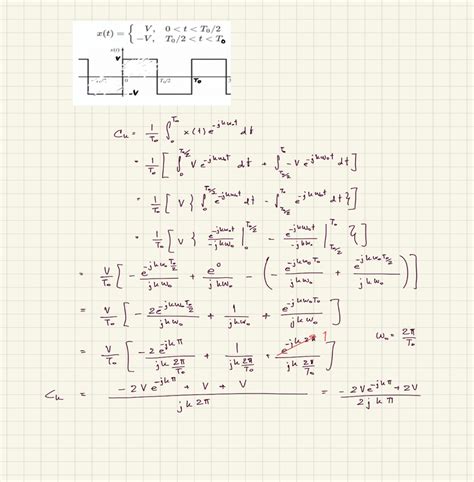 x(t) = { V, 0 < t < T₀/2
−V, T₀/2 < t < T₀
x(t)
V
0 T₀/2 T₀
-V
Cₖ = 1/T₀ ∫₀^T₀ x(t) e^-jkω₀t dt
= 1/T₀ [ ∫₀^T₀/2 V e^-jkω₀t dt + ∫_T₀/2^T₀ -V e^-jkω₀t dt ]
= 1/T₀ [ V { ∫₀^T₀/2 e^-jkω₀t dt - ∫_T₀/2^T₀ e^-jkω₀t dt } ]
= 1/T₀ [ V { e^-jkω₀t / -jkω₀ |₀^T₀/2 - e^-jkω₀t / -jkω₀ |_T₀/2^T₀ } ]
= V/T₀ [ - e^-jkω₀T₀/2 / jkω₀ + e⁰ / jkω₀ - ( - e^-jkω₀T₀ / jkω₀ + e^-jkω₀T₀/2 / jkω₀ ) ]
= V/T₀ [ - 2e^-jkω₀T₀/2 / jkω₀ + 1 / jkω₀ + e^-jkω₀T₀ / jkω₀ ]
ω₀ = 2π/T₀
= V/T₀ [ -2e^-jkπ / jk 2π/T₀ + 1 / jk 2π/T₀ + e^-jk2π / jk 2π/T₀ ] 1
Cₖ = -2Ve^-jkπ + V + V / jk2π = -2Ve^-jkπ + 2V / 2jkπ